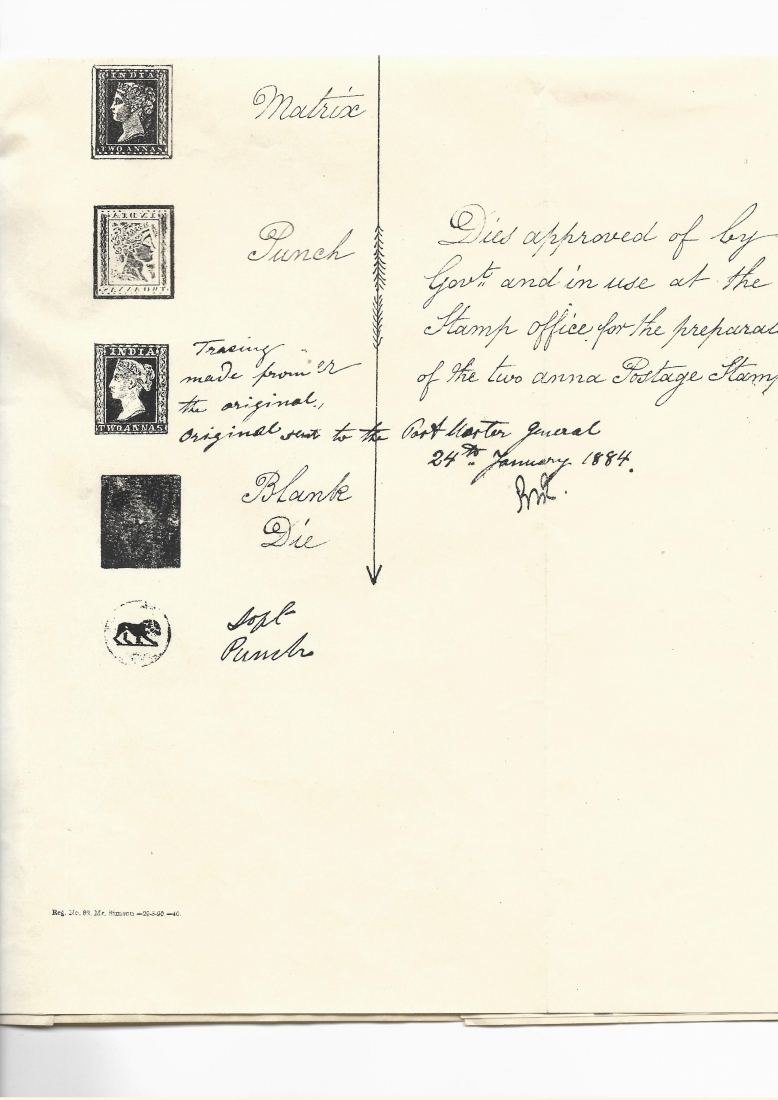 INDIA
TWO ANNAS
Matrix
Punch
Dies approved of by
Govt. and in use at the
Stamp office for the prepara
of the two anna Postage Stamp
INDIA
TWO ANNAS
Tracing
made from
the original.
Original sent to the Post Master General
24th January 1884.
Blank
Die
Punch
Reg. No. 82, Mr. Simson —29-8-90 —40.